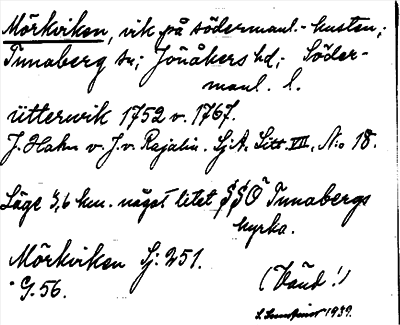 Mörkviken, vik på södermanl.-kusten;
Tunaberg sn; Jönåkers hd; Söder-
manl. l.
ütterwik 1752 v. 1767.
J. Hahn v. J. v. Rajalin. Sj.A. Litt. VII, N:o 18.
Läge 3,6 km. något litet SSO Tunabergs
kyrka.
Mörkviken Sj: 251.
G. 56.
(Vänd!)
1939.